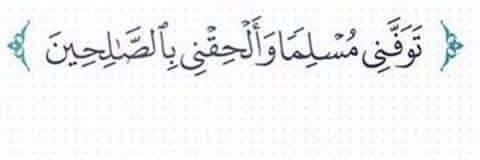 ﴿ تَوَفَّنِي مُسْلِمًا وَأَلْحِقْنِي بِٱلصَّٰلِحِينَ ﴾